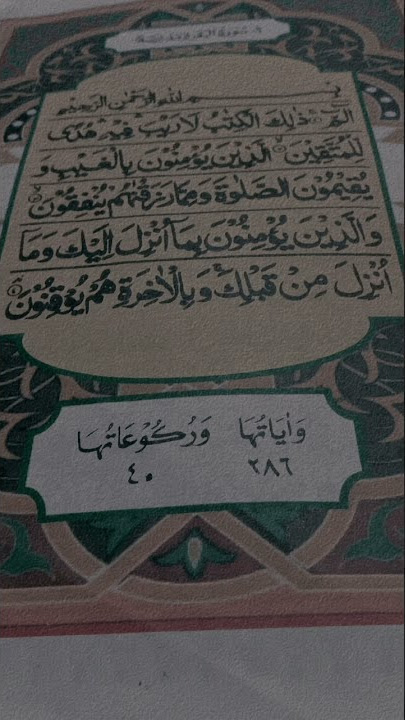 سورة البقرة مدنية
بسم الله الرحمن الرحيم
الٓمٓ ذٰلِكَ الْكِتٰبُ لَا رَيْبَ فِيْهِ هُدًى
لِّلْمُتَّقِيْنَ الَّذِيْنَ يُؤْمِنُوْنَ بِالْغَيْبِ وَ
يُقِيْمُوْنَ الصَّلٰوةَ وَمِمَّا رَزَقْنٰهُمْ يُنْفِقُوْنَ
وَالَّذِيْنَ يُؤْمِنُوْنَ بِمَآ اُنْزِلَ اِلَيْكَ وَمَآ
اُنْزِلَ مِنْ قَبْلِكَ وَبِالْاٰخِرَةِ هُمْ يُوْقِنُوْنَ
وَاٰيَاتُهَا وَرُكُوْعَاتُهَا
٢٨٦ ٤٠